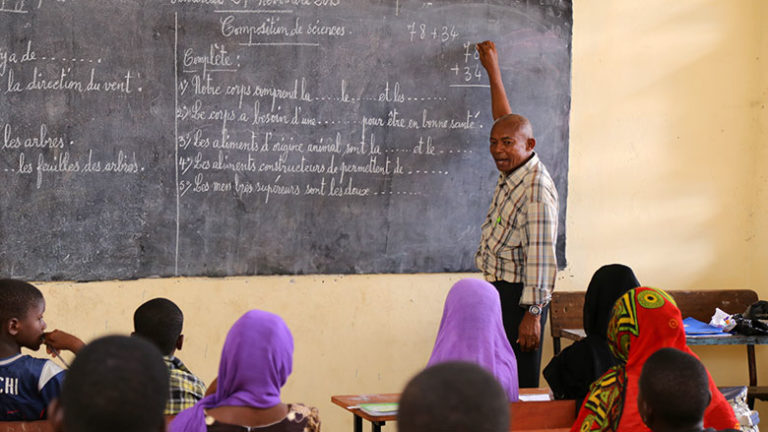 Novembre 2015
Composition de Sciences.
Complète :
1°/ Notre corps comprend la ...... le ..... et les .........
2°/ Le corps a besoin d'une .......... pour être en bonne santé.
3°/ Les aliments d'origine animal sont la ..... et le .....
4°/ Les aliments constructeurs de permettent de .......
5°/ Les membres supérieurs sont les doux ..........
ya de .......
la direction du vent.
les arbres.
.. les feuilles des arbres.
78 + 34
78
+ 34
CHI